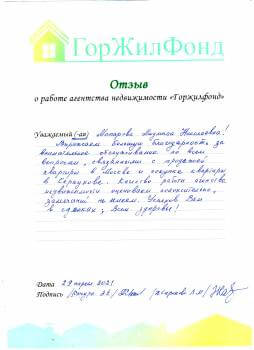 ГорЖилФонд
Отзыв
о работе агентства недвижимости «Горжилфонд»
Уважаемый (-ая) Людмила Николаевна!
Выражаем большую благодарность за
внимательное обслуживание по всем
вопросам, связанными с продажей
квартиры в Москве и покупке квартиры
в Серпухове. Качество работы агентства
недвижимости оцениваем положительно,
замечаний не имеем. Успехов Вам
в сделках, Всем здоровья!
Дата 29 апреля 2021
Подпись